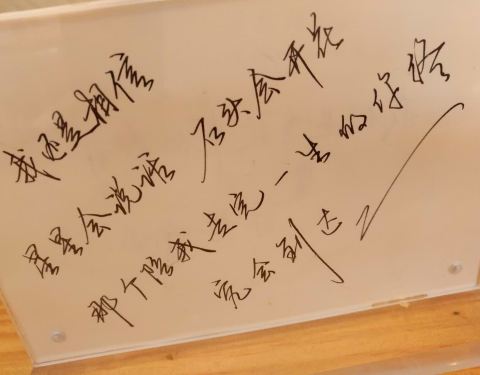 我还是相信
星星会说话 石头会开花
那个陪我走完一生的你终
究会到达